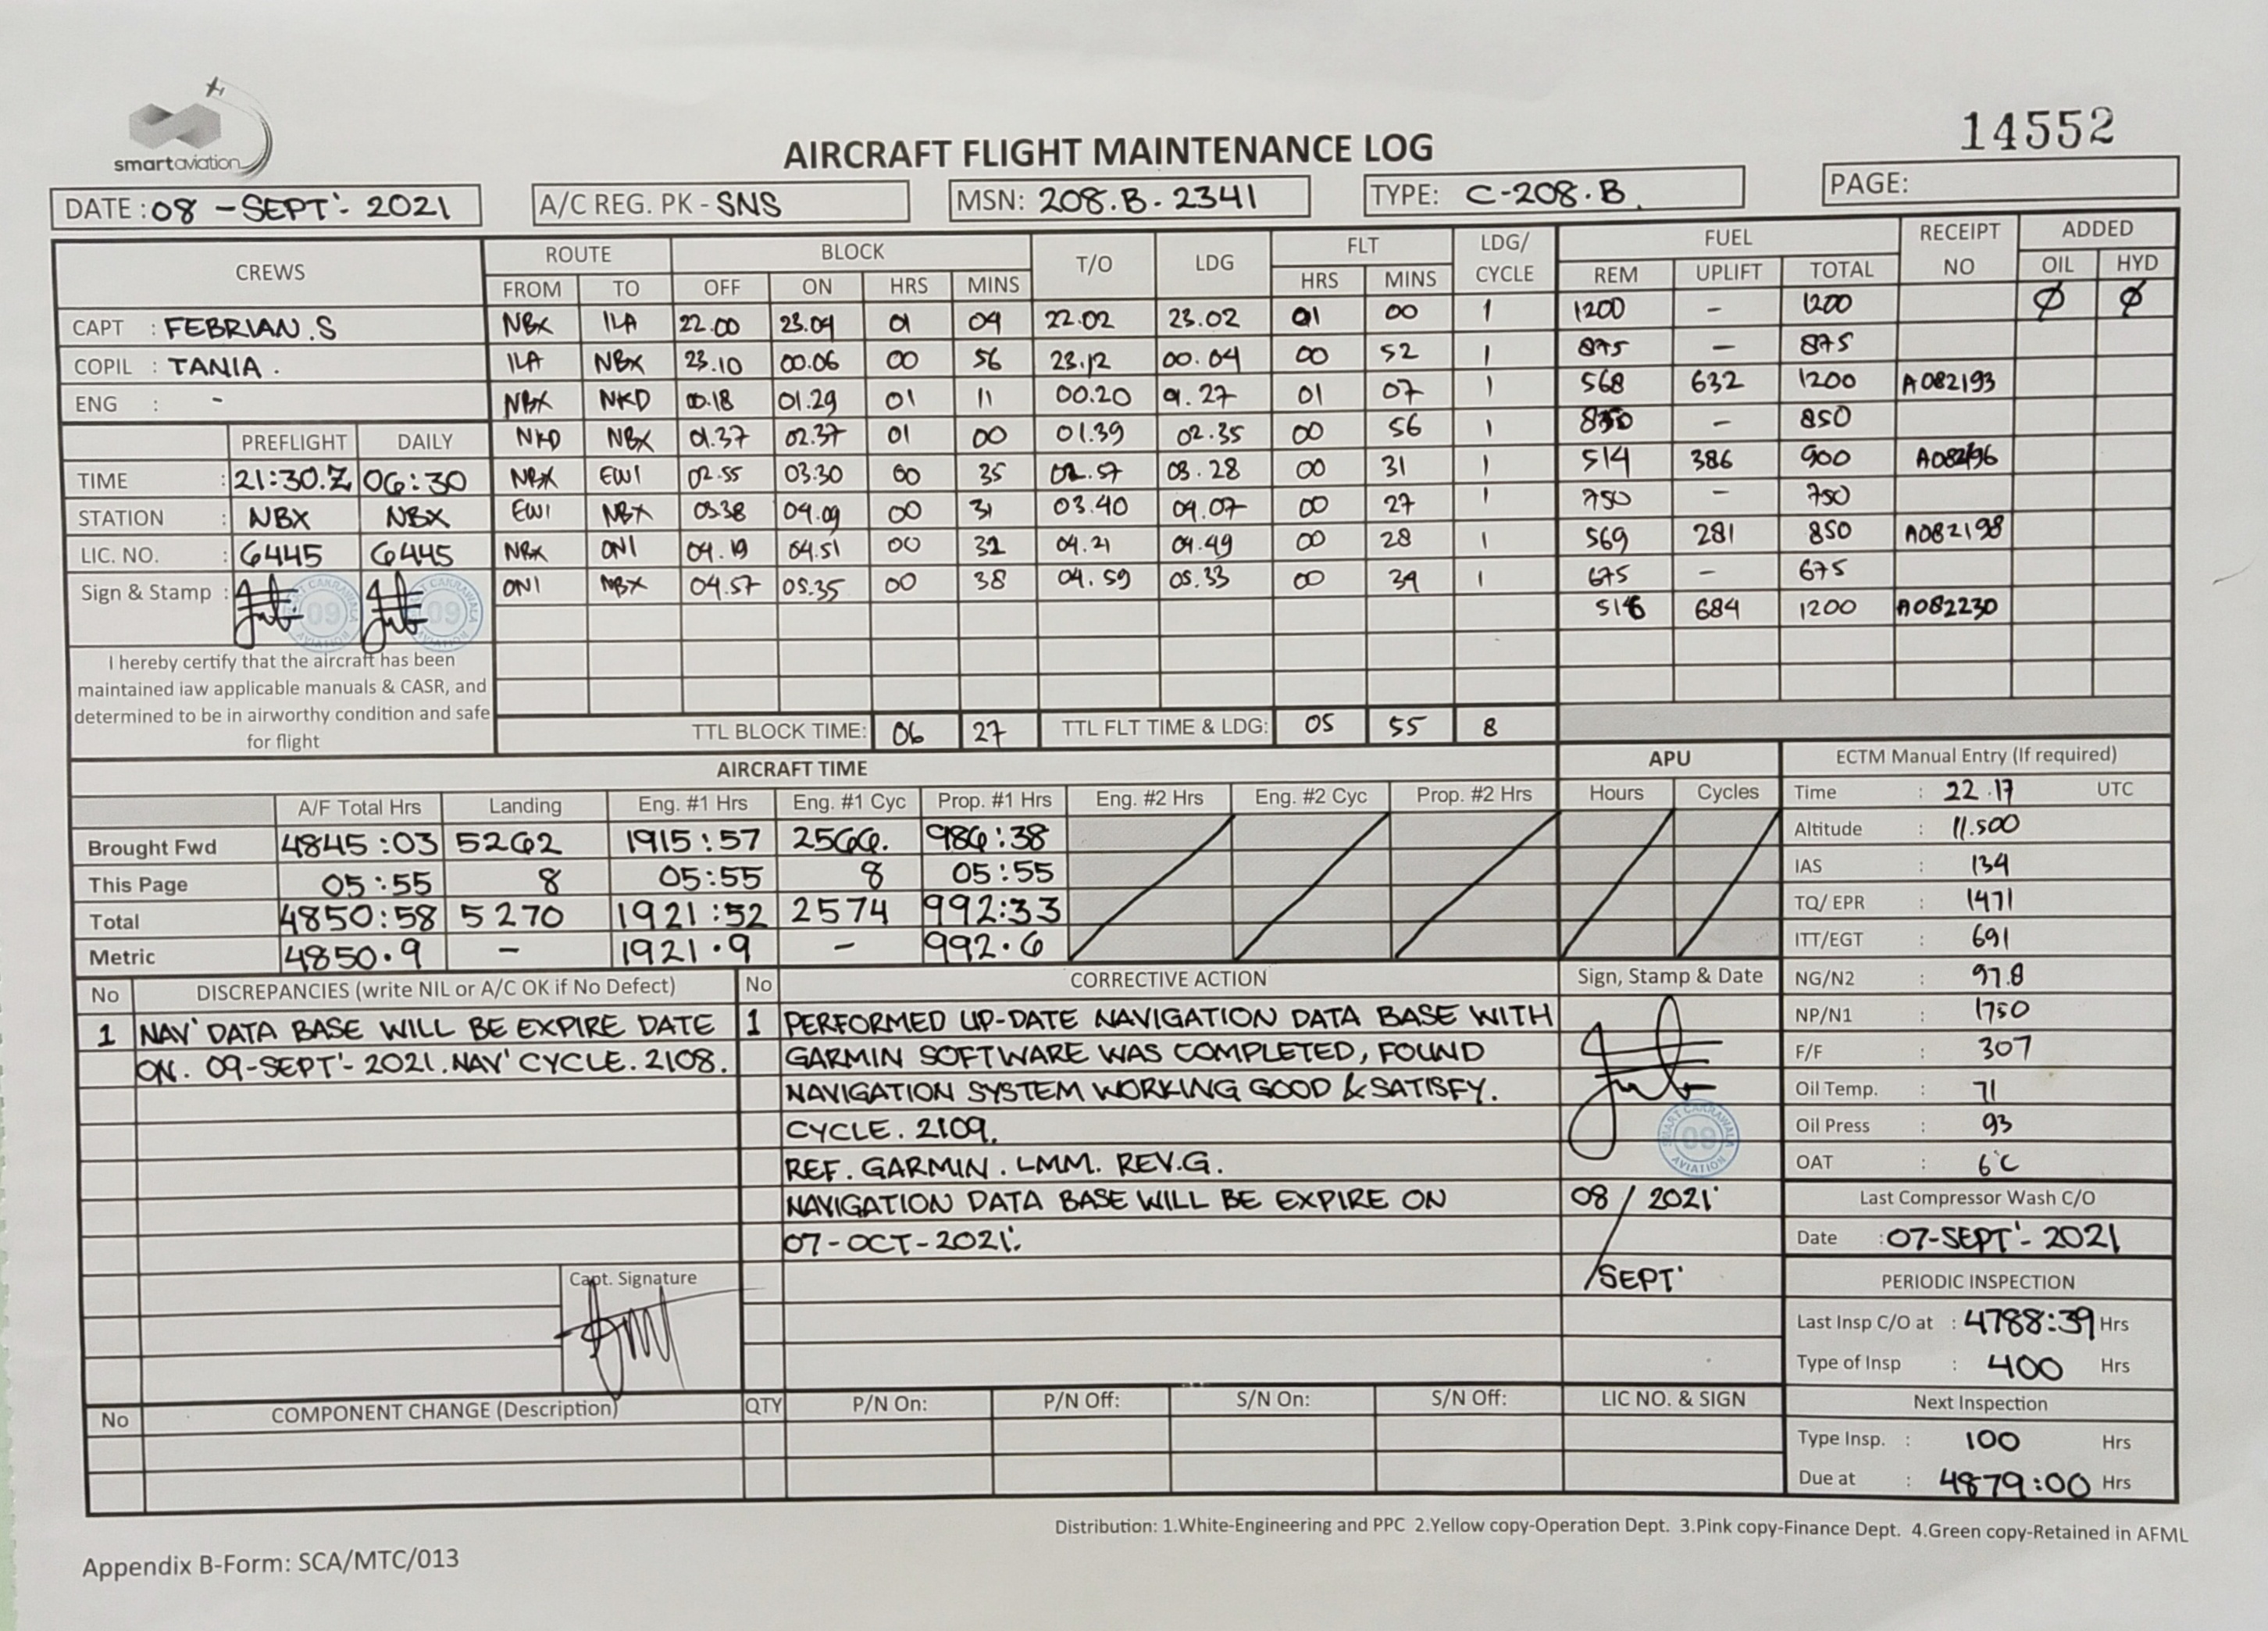 smartaviation
14552
AIRCRAFT FLIGHT MAINTENANCE LOG
DATE : 08 - SEPT'- 2021 A/C REG. PK - SNS MSN: 208.B - 2341 TYPE: C-208.B PAGE:
CREWS ROUTE BLOCK T/O LDG FLT LDG/ CYCLE FUEL RECEIPT NO ADDED
FROM TO OFF ON HRS MINS HRS MINS REM UPLIFT TOTAL OIL HYD
CAPT : FEBRIAN.S NBX ILA 22.00 23.04 01 04 22.02 23.02 01 00 1 1200 - 1200 Ø Ø
COPIL : TANIA . ILA NBX 23.10 00.06 00 56 23.12 00.04 00 52 1 875 - 875
ENG : - NBX NKD 00.18 01.29 01 11 00.20 01.27 01 07 1 568 632 1200 A082193
NKD NBX 01.37 02.37 01 00 01.39 02.35 00 56 1 850 - 850
PREFLIGHT DAILY
TIME : 21:30.Z 06:30 NBX EWI 02.55 03.30 00 35 02.57 03.28 00 31 1 514 386 900 A082196
STATION : NBX NBX EWI NBX 03.38 04.09 00 31 03.40 04.07 00 27 1 750 - 750
LIC. NO. : 6445 6445 NBX ONI 04.19 04.51 00 32 04.21 04.49 00 28 1 569 281 850 A082198
Sign & Stamp : ONI NBX 04.57 05.35 00 38 04.59 05.33 00 34 1 675 - 675
516 684 1200 A082230
I hereby certify that the aircraft has been
maintained iaw applicable manuals & CASR, and
determined to be in airworthy condition and safe
for flight
TTL BLOCK TIME: 06 27 TTL FLT TIME & LDG: 05 55 8
AIRCRAFT TIME APU
A/F Total Hrs Landing Eng. #1 Hrs Eng. #1 Cyc Prop. #1 Hrs Eng. #2 Hrs Eng. #2 Cyc Prop. #2 Hrs Hours Cycles
Brought Fwd 4845:03 5262 1915:57 2566. 986:38
This Page 05:55 8 05:55 8 05:55
Total 4850:58 5270 1921:52 2574 992:33
Metric 4850.9 - 1921.9 - 992.6
ECTM Manual Entry (If required)
Time : 22.17 UTC
Altitude : 11.500
IAS : 134
TQ/ EPR : 1471
ITT/EGT : 691
NG/N2 : 97.8
NP/N1 : 1750
F/F : 307
Oil Temp. : 71
Oil Press : 93
OAT : 6°C
Last Compressor Wash C/O
Date : 07-SEPT'- 2021
PERIODIC INSPECTION
Last Insp C/O at : 4788:39 Hrs
Type of Insp : 400 Hrs
Next Inspection
Type Insp. : 100 Hrs
Due at : 4879:00 Hrs
No DISCREPANCIES (write NIL or A/C OK if No Defect)
1 NAV' DATA BASE WILL BE EXPIRE DATE
ON. 09-SEPT'- 2021.NAV' CYCLE. 2108.
Capt. Signature
No CORRECTIVE ACTION
1 PERFORMED UP-DATE NAVIGATION DATA BASE WITH
GARMIN SOFTWARE WAS COMPLETED, FOUND
NAVIGATION SYSTEM WORKING GOOD & SATISFY.
CYCLE. 2109.
REF. GARMIN . LMM. REV.G.
NAVIGATION DATA BASE WILL BE EXPIRE ON
07-OCT-2021'.
Sign, Stamp & Date
SMART CAKRAWALA
09
AVIATION
08 / 2021'
/SEPT'
No COMPONENT CHANGE (Description) QTY P/N On: P/N Off: S/N On: S/N Off: LIC NO. & SIGN
Distribution: 1.White-Engineering and PPC 2.Yellow copy-Operation Dept. 3.Pink copy-Finance Dept. 4.Green copy-Retained in AFML
Appendix B-Form: SCA/MTC/013